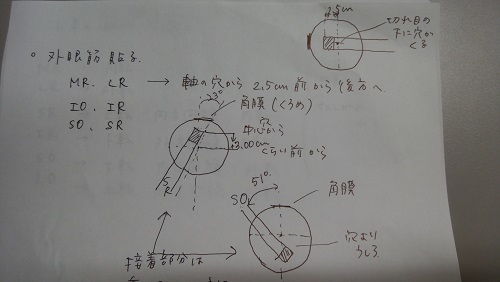 2.5cm
切れ目の
下に穴が
くる
○ 外眼筋貼る
MR、LR → 軸の穴から 2.5cm前から後方へ
IO、IR
SO、SR
23°
角膜(くろめ)
穴
中心から
3.00cm
くらい前から
SR
51°
SO
角膜
穴より
うしろ
接着部分は